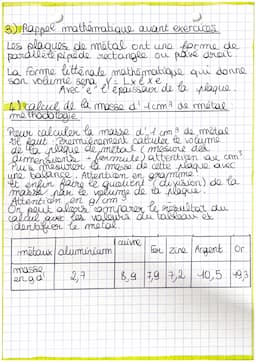 3) Rappel mathématique avant exercices
Les plaques de métal ont une forme de
parallélépipède rectangle ou pavé droit.
La forme littérale mathématique qui donne
son volume sera V = L x l x e
Avec "e" l'épaisseur de la plaque.
4) calcul de la masse d'1 cm³ de métal
méthodologie
Pour calculer la masse d'1 cm³ de métal
il faut : Premièrement calculer le volume
de la plaque de métal (mesure des
dimensions - formule) attention au cm³
Puis mesurer la masse de cette plaque avec
une balance. Attention en gramme.
Et enfin faire le quotient (division) de la
masse par le volume de la plaque.
Attention en g/cm³
On peut alors comparer le résultat du
calcul avec les valeurs du tableau et
identifier le métal.
métaux aluminium cuivre Fer zinc Argent Or
masse en g d' 2,7 8,9 7,9 7,2 10,5 19,3